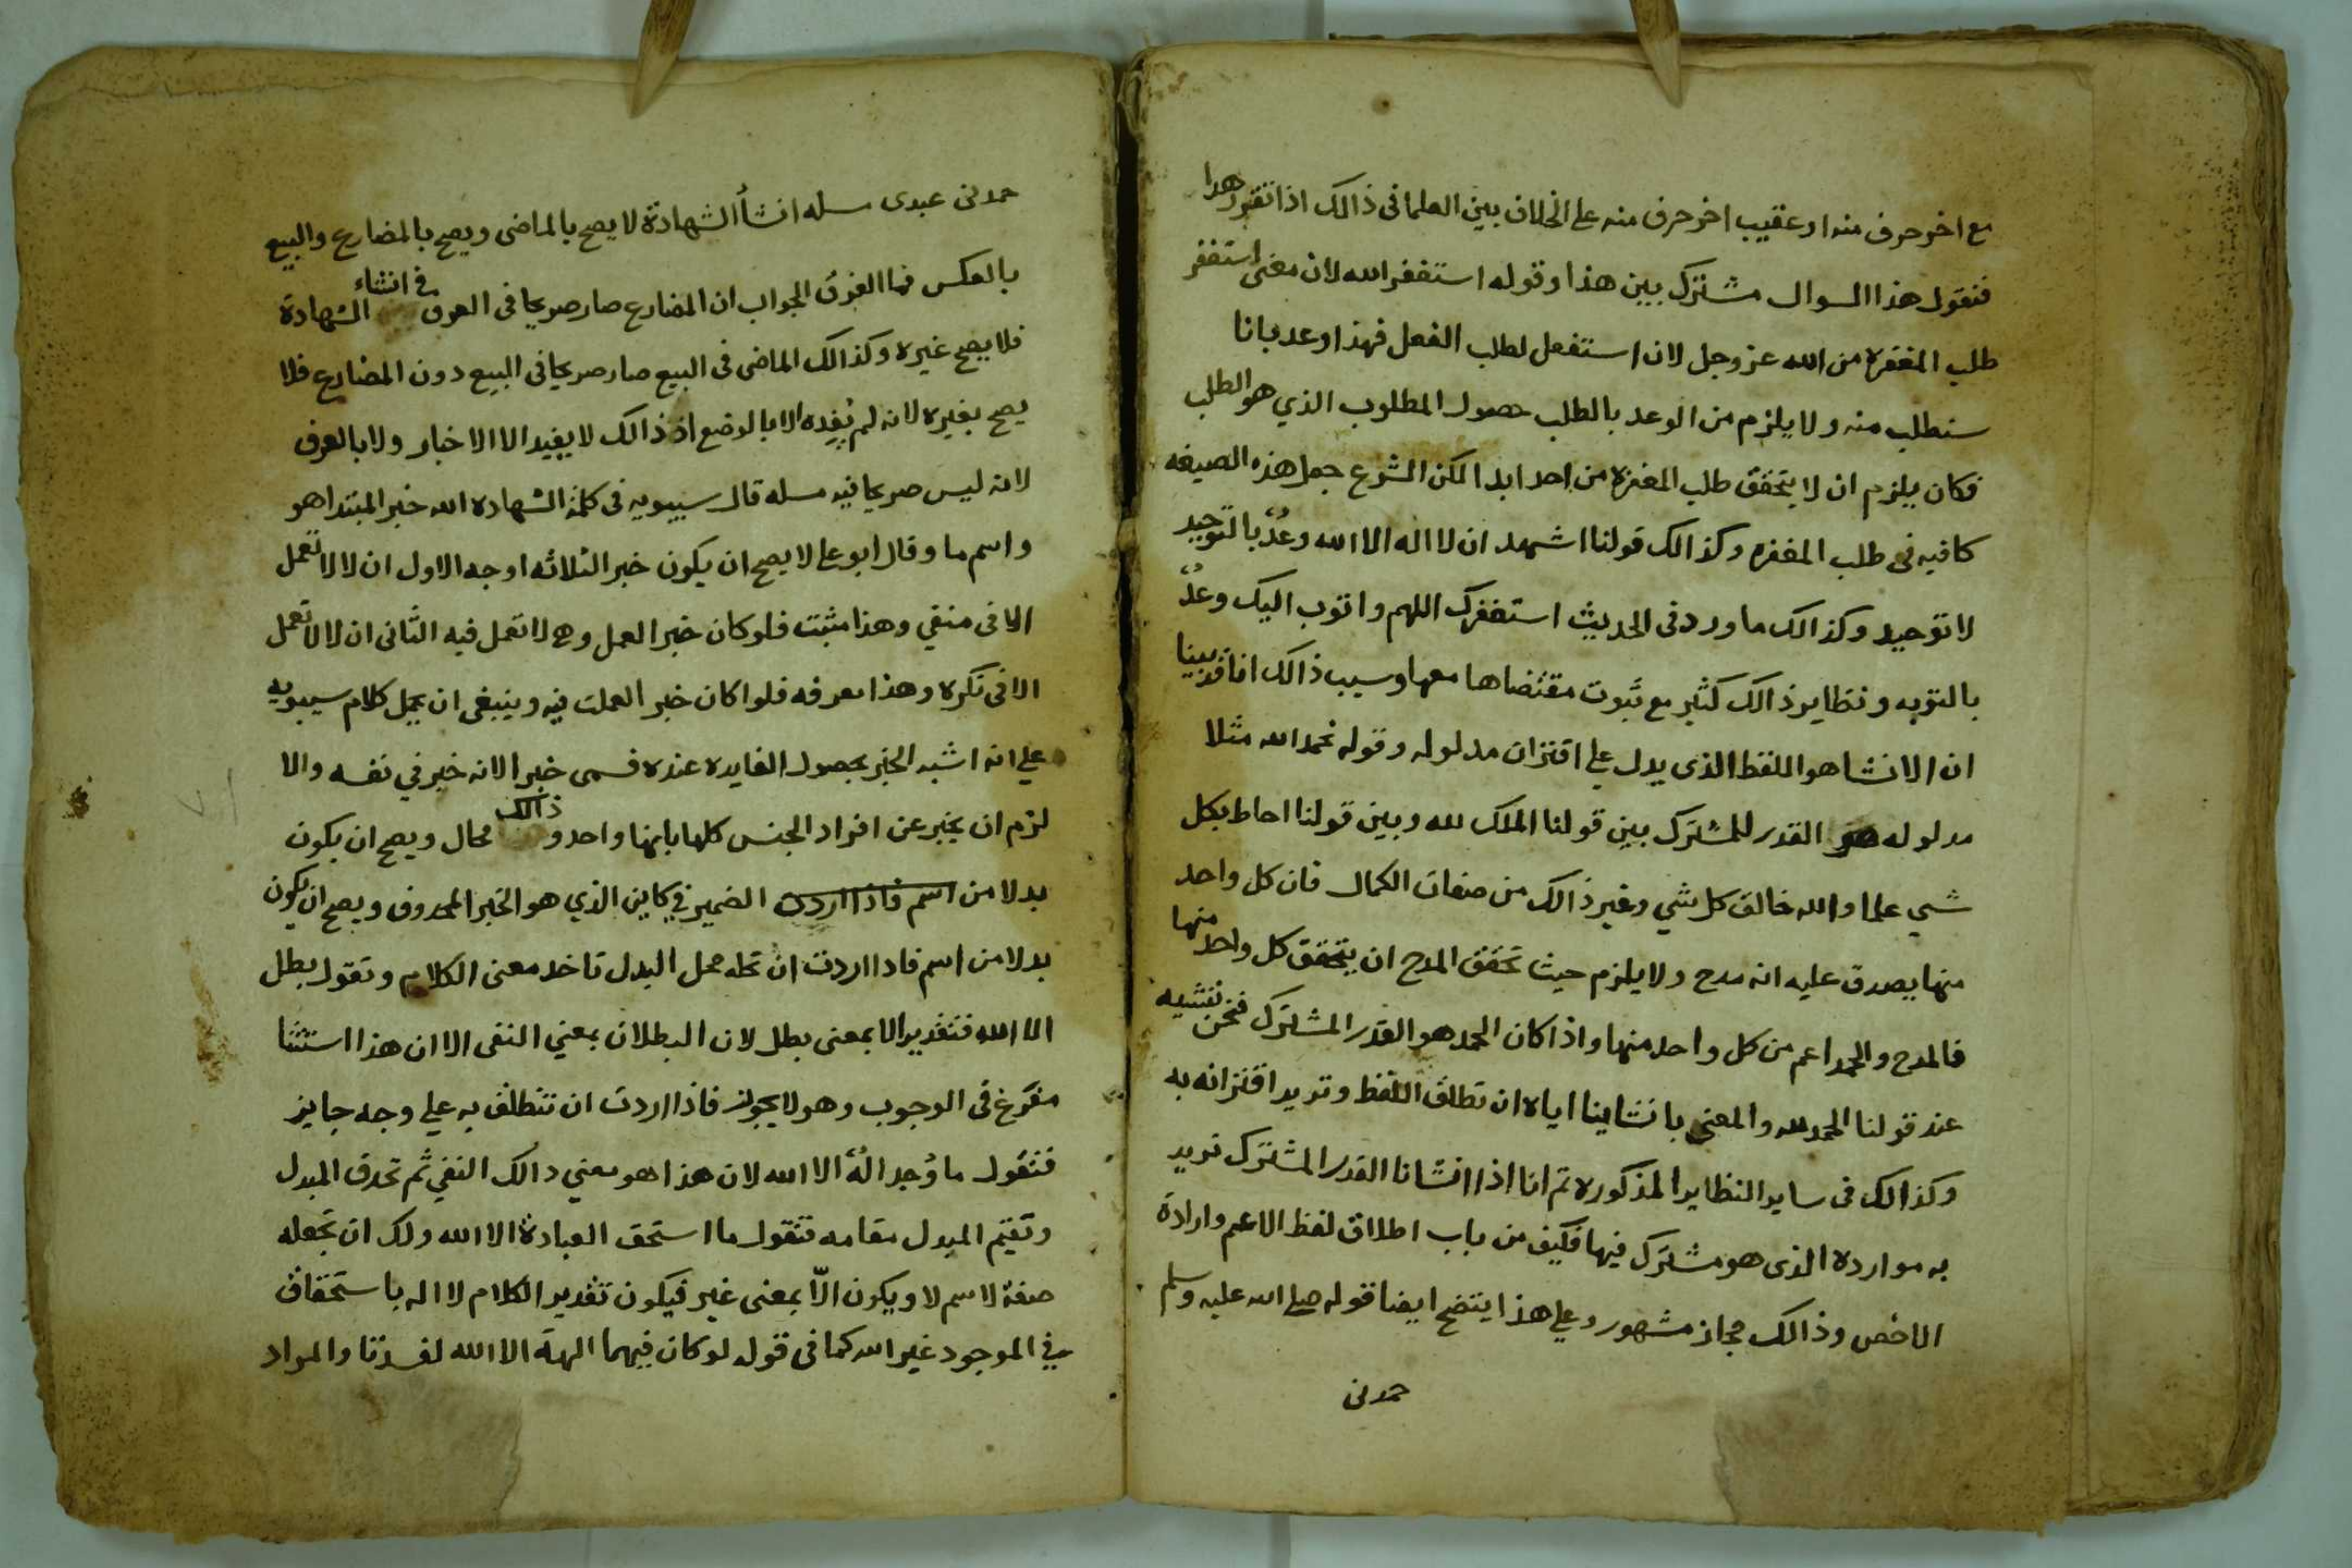 مع اخر حرف منه او عقيب اخر حرف منه على الخلاف بين العلما فى ذالك اذا تقرر هدا
فنقول هذا السوال مشترك بين هذا وقوله استغفر الله لان معنى استغفر
طلب المغفرة من الله عز وجل لان استفعل لطلب الفعل فهذا وعد بانا
سنطلب منه ولا يلزم من الوعد بالطلب حصول المطلوب الذي هو الطلب
فكان يلزم ان لا يتحقق طلب المغفرة من احد ابدا لكن الشرع جعل هذه الصيغه
كافيه فى طلب المغفره وكذالك قولنا اشهد ان لا اله الا الله وعدٌ بالتوحيد
لا توحيد وكذالك ما ورد فى الحديث استغفرك اللهم واتوب اليك وعدٌ
بالتوبه ونظاير ذالك كثير مع ثبوت مقتضاها معها وسبب ذالك انا قد بينا
ان الانشا هو اللفظ الذى يدل على اقتران مدلوله وقوله نحمد الله مثلا
مدلوله هو القدر المشترك بين قولنا الملك لله وبين قولنا احاط بكل
شي علما والله خالق كل شي وغير ذالك من صفات الكمال فان كل واحد
منها يصدق عليه انه مدح ولا يلزم حيث تحقق المدح ان يتحقق كل واحد منها
فالمدح والحمد اعم من كل واحد منها واذا كان الحمد هو القدر المشترك فنحن ننشيه
عند قولنا الحمد لله والمعنى بانشاينا اياه ان نطلق اللفظ ونريد اقترانه به
وكذالك فى ساير النظاير المذكوره ثم انا اذا انشانا القدر المشترك نريد
به موارده الذى هو مشترك فيها فكيف من باب اطلاق لفظ الاعم وارادة
الاخص وذالك مجاز مشهور وعلى هذا يتضح ايضا قوله صلى الله عليه وسلم
حمدنى
حمدنى عبدى مسله انشأ الشهادة لا يصح بالماضى ويصح بالمضارع والبيع
بالعكس فما الفرق الجواب ان المضارع صار صريحا فى العرف فى انشاء الشهادة
فلا يصح غيره وكذالك الماضى فى البيع صار صريحا فى البيع دون المضارع فلا
يصح بغيره لانه لم يُفِده الا بالوضع اذ ذالك لا يفيد الا الاخبار ولا بالعرف
لانه ليس صريحا فيه مسله قال سيبويه فى كلمة الشهاده الله خبر المبتدا هو
واسم ما وقال ابو على لا يصح ان يكون خبر الثلاثه اوجه الاول ان لا لا تعمل
الا فى منفي وهذا مثبت فلو كان خبر العمل وهى لا تعمل فيه الثانى ان لا لا تعمل
الا فى نكره وهذا معرفه فلو كان خبر العملت فيه وينبغى ان يحمل كلام سيبويه
على انه اشبه الخبر بحصول الفايده عنده فسمى خبر الانه خبر في نفسه والا
لزم ان يخبر عن افراد الجنس كلها بانها واحد و ذالك محال ويصح ان يكون
بدلا من اسم فاذا اردت الضمير في كاين الذي هو الخبر المحدوف ويصح ان يكون
بدلا من اسم فاذا اردت ان تحله محل البدل تاخد معنى الكلام وتقول بطل
الا الله فتقدير الا بمعنى بطل لان البطلان بمعني النفى الا ان هذا استثنا
مفرغ فى الوجوب وهو لا يجوز فاذا اردت ان تنطلق به علي وجه جايز
فنقول ما وُجد الهٌ الا الله لان هذا هو معني دالك النفي ثم تحدف المبدل
وتقيم المبدل مقامه فتقول ما استحق العبادة الا الله ولك ان تجعله
صفة لاسم لا ويكون الّا بمعنى غير فيكون تقدير الكلام لا اله باستحقاق
في الموجود غير الله كما فى قوله لو كان فيهما الهة الا الله لفسدتا والمراد